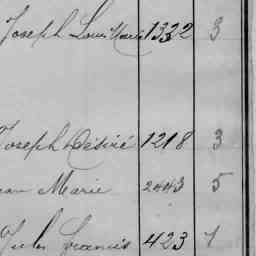 Joseph Louis Marie 1332 3
Joseph Désiré 1218 3
Jean Marie 2443 5
Jules Francis 423 1